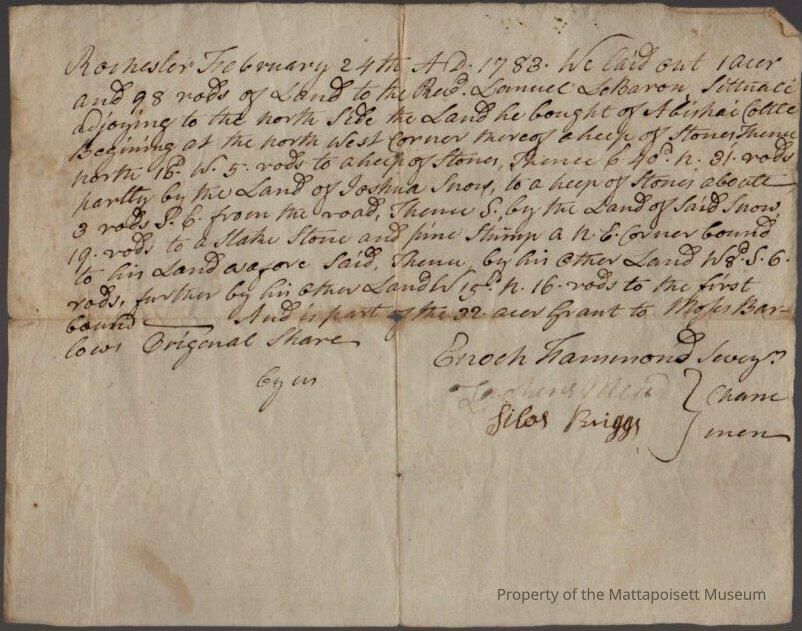 Rochester February 24th A D. 1783. We laid out 1 acer
and 98 rods of Land to the Revd. Lemuel LeBaron, Sittuate
adjoying to the north Side the Land he bought of Abishai Cottle
Begining at the north west Corner thereof a heep of Stones, Thence
north 16d. W. 5. rods to a heep of Stones, Thence E 40d. N. 31. rods
partly by the Land of Joshua Snow, to a heep of Stones aboute
3 rods S. E. from the road, Thence S. by the Land of Said Snow,
19. rods to a Stake Stone and pine Stump a N. E. Corner bound
to his Land as afore Said, Thence, by his other Land W 8d. S. 6.
rods, further by his other Land W 15d. N. 16. rods to the first
bound And is part of the 32. acer Grant to Moses Bar-
lows Origenal Share
by us
Enoch Hammond Sevey.r
Chane
Silas Briggs
men
Property of the Mattapoisett Museum